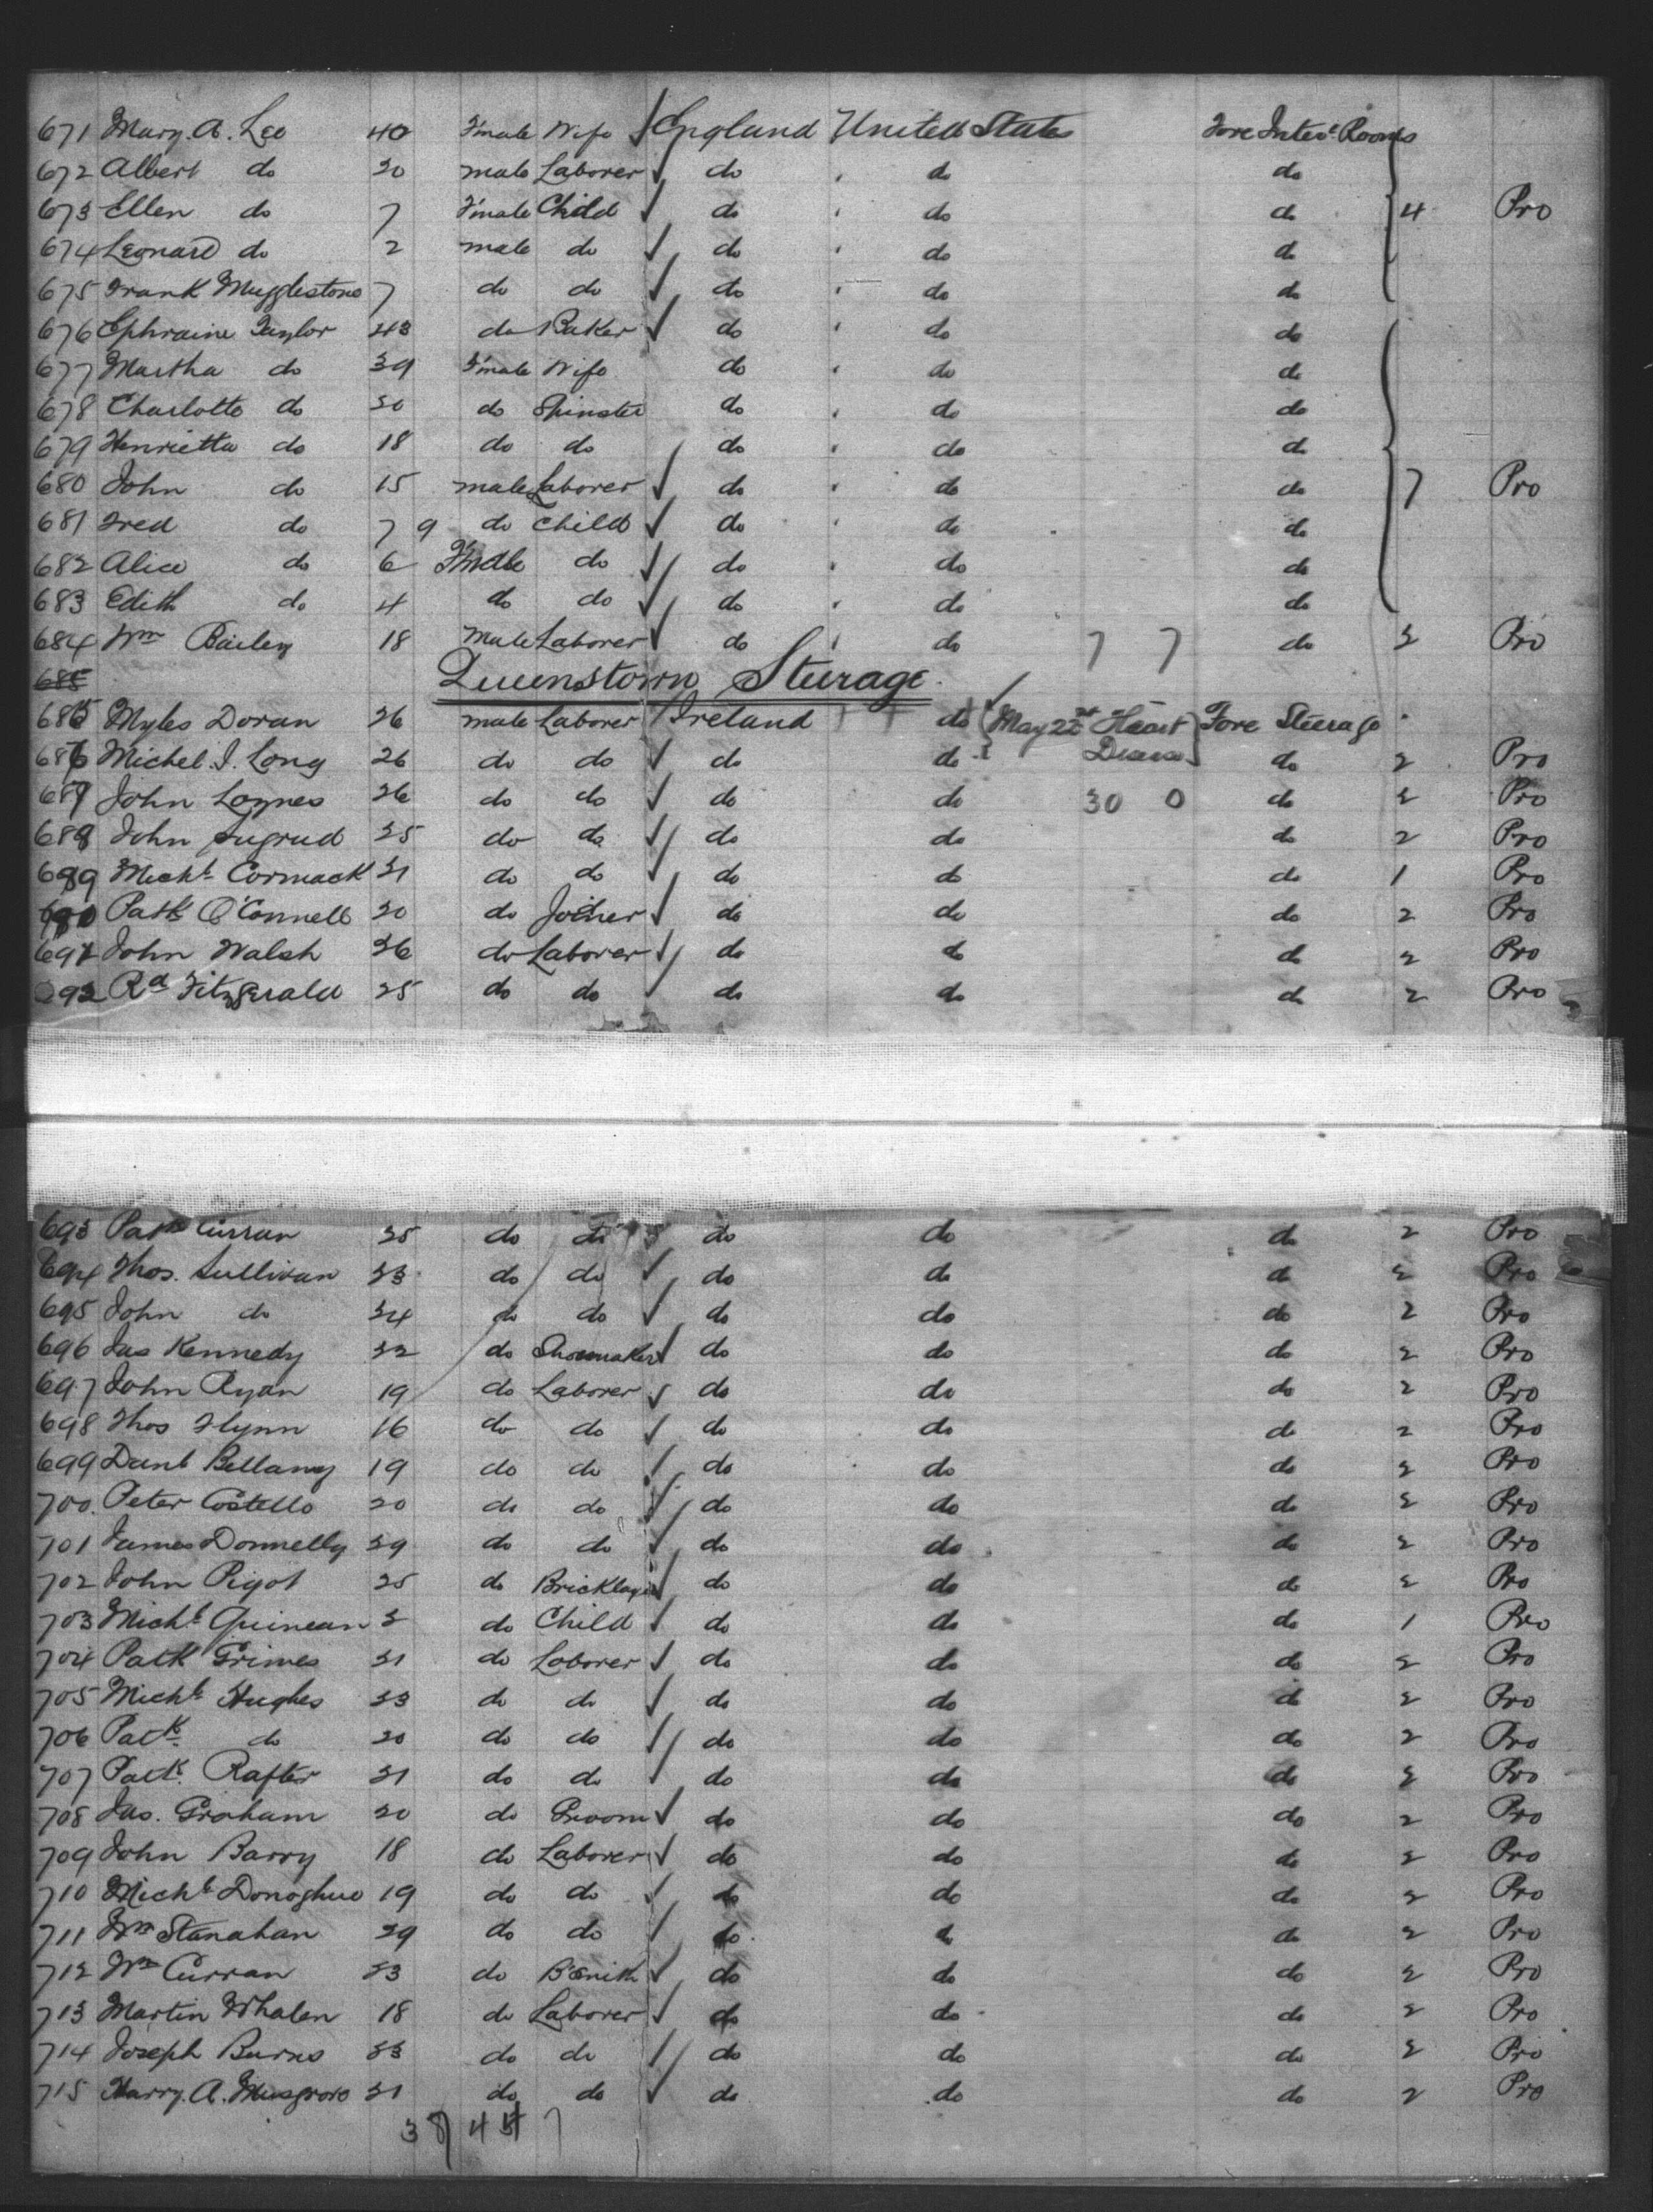 671 Mary. A. Leo 40 F'male Wife England United States Fore Inter't Rooms
672 Albert do 20 male Laborer do do do
673 Ellen do 7 F'male Child do do do 4 Pro
674 Leonard do 2 male do do do do
675 Frank Mugglestone 7 do do do do do
676 Ephraine Taylor 43 do Baker do do do
677 Martha do 39 F'male Wife do do do
678 Charlotte do 20 do Spinster do do do
679 Henrietta do 18 do do do do do
680 John do 15 male Laborer do do do 7 Pro
681 Fred do 7 9 do Child do do do
682 Alice do 6 F'male do do do do
683 Edith do 4 do do do do do
684 Wm Bailey 18 Male Laborer do do 7 7 do 2 Pro
685 Queenstown Steerage
685 Myles Doran 26 male Laborer Ireland do May 22nd Heart Fore Steerage
686 Michel. J. Long 26 do do do do Disease do 2 Pro
687 John Loynes 26 do do do do 30 0 do 2 Pro
688 John Sugrud 25 do do do do do 2 Pro
689 Michl Cormack 21 do do do do do 1 Pro
690 Patk O'Connell 20 do Joiner do do do 2 Pro
691 John Walsh 26 do Laborer do do do 2 Pro
692 Rd Fitzgerald 25 do do do do do 2 Pro
693 Patk Curran 25 do do do do do 2 Pro
694 Thos. Sullivan 23 do do do do do 2 Pro
695 John do 24 do do do do do 2 Pro
696 Jas Kennedy 22 do Shoemaker do do do 2 Pro
697 John Ryan 19 do Laborer do do do 2 Pro
698 Thos Flynn 16 do do do do do 2 Pro
699 Danl Bellamy 19 do do do do do 2 Pro
700. Peter Costello 20 do do do do do 2 Pro
701 James Donnelly 29 do do do do do 2 Pro
702 John Pigot 25 do Bricklayer do do do 2 Pro
703 Michl Guinean 2 do Child do do do 1 Pro
704 Patk Grimes 21 do Laborer do do do 2 Pro
705 Michl Hughes 23 do do do do do 2 Pro
706 Patk do 20 do do do do do 2 Pro
707 Patk. Rafter 21 do do do do do 2 Pro
708 Jas. Graham 20 do Groom do do do 2 Pro
709 John Barry 18 do Laborer do do do 2 Pro
710 Michl Donoghue 19 do do do do do 2 Pro
711 Wm Stanahan 29 do do do do do 2 Pro
712 Wm Curran 23 do B'Smith do do do 2 Pro
713 Martin Whalen 18 do Laborer do do do 2 Pro
714 Joseph Burns 23 do do do do do 2 Pro
715 Harry. A. Musgrove 21 do do do do do 2 Pro